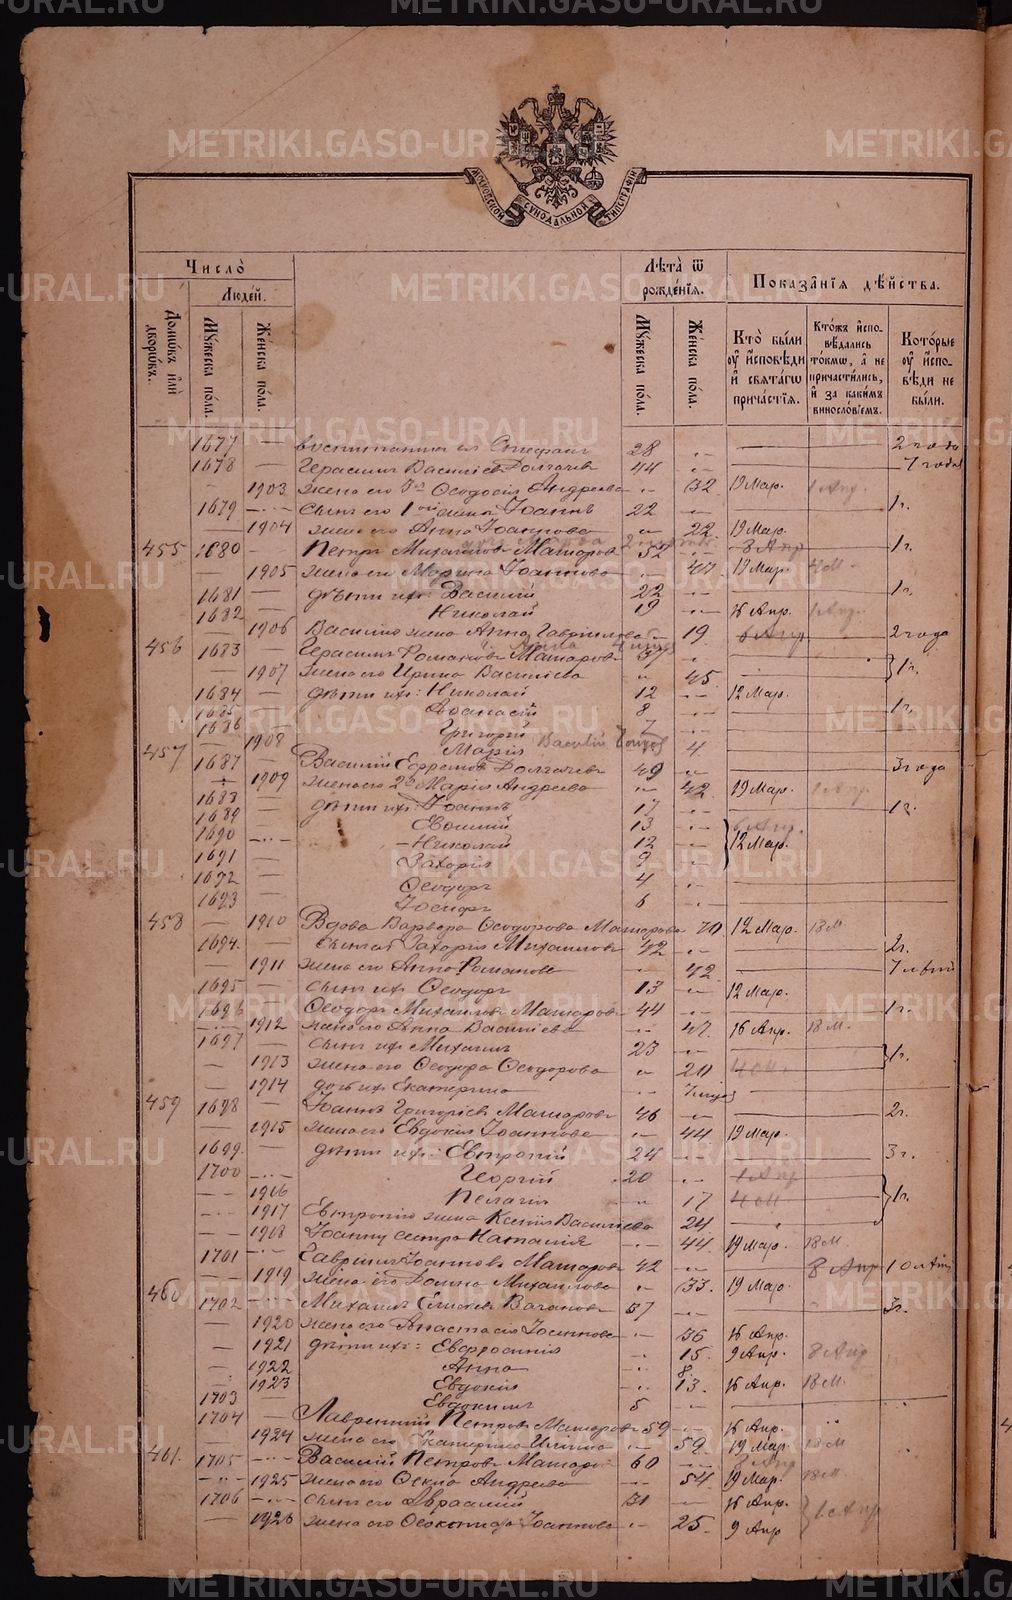 МОСКОВСКОЙ СѴНОДАЛЬНОЙ ТИПОГРАФІИ
Число̀
Людей.
Лѣта̀ ѿ рожденїя.
Показанїя дѣйства.
Домѡвъ и҆лѝ дворѡвъ.
Мꙋжеска пола.
Женска пола.
Мꙋжеска пола.
Женска пола.
Кто̀ были оу҆ и҆сповѣди и҆ свѧтагѡ причастїѧ.
Ктожъ и҆споведались токмѡ, а҆ не причастились, и҆ за какимъ винословїемъ.
Которые оу҆ и҆сповѣди не были.
1677 — воспитанникъ ея Стефанъ 28 2 года
1678 — Герасимъ Василіевъ Долгачевъ 44 7 годов
— 1903 жена его 2я Ѳеодосія Андреева 32 19 Мар. 1 Апр.
1679 — сынъ его 1ой жены Іоаннъ 22 1 г.
1904 жена его Анна Іоаннова 22 19 Мар.
455 1680 — Петръ Михаиловъ Машаровъ 52 8 Апр 1 г.
— 1905 жена его Марина Іоаннова 47 19 Мар.
1681 — дѣти ихъ: Василій 22 1 г.
1682 — Николай 19 16 Апр. 1 Апр.
— 1906 Василію жена Анна Гавриилова 19 6 Апр 2 года
456 1683 Герасимъ Романовъ Машаровъ
— 1907 жена его Ирина Василіева 45 1 г.
1684 — дѣти ихъ: Николай 12 12 Мар.
1685 — Аѳанасій 8 1 г.
1686 — Григорій 7
— 1908 Марія 4
457 1687 — Василій Ефремовъ Долгачевъ 49 3 года
1909 жена его 2я Марія Андреева 42 19 Мар. 1 Апр.
1688 — дѣти ихъ: Іоаннъ 17 1 г.
1689 — Евѳимій 13 6 Апр.
1690 Николай 12 12 Мар.
1691 — Захарія 9
1692 — Ѳеодоръ 4
1693 — Іосифъ 6
458 — 1910 Вдова Варвара Ѳеодорова Машарова 70 12 Мар. 18 М
1694 сынъ ея Захарія Михаиловъ 42 2 г.
— 1911 жена его Анна Романова 42
1695 — сынъ ихъ Ѳеодоръ 13 12 Мар.
1696 Ѳеодоръ Михаиловъ Машаровъ 44 1 г.
1912 жена его Анна Василіева 47 16 Апр. 18 М.
1697 — сынъ ихъ Михаилъ 23 1 г.
— 1913 жена его Ѳеодора Ѳеодорова 20
— 1914 дочь ихъ Екатерина
459 1698 — Іоаннъ Григоріевъ Машаровъ 46 2 г.
— 1915 жена его Евдокія Іоаннова 44 19 Мар.
1699 — дѣти ихъ: Евтропій 24 3 г.
1700 Георгій 20 1 Апр
1916 Пелагія 17 1 г.
1917 Евтропію жена Ксенія Василіева 24
1918 Іоанну сестра Наталія 44 19 Мар. 18 М.
1701 Гавріилъ Іоанновъ Машаровъ 42 8 Апр 10 лѣтъ
— 1919 жена его Домна Михаилова 33 19 Мар
460 1702 Михаилъ 37 3 г.
— 1920 жена его Анастасія Іоаннова 36 16 Апр.
— 1921 дѣти ихъ: Евфросинія 15 9 Апр. 8 Апр
1922 Анна 8
1923 Евдокія 13 16 Апр. 18 М.
1703 Евдокимъ 5
1704 — Лаврентій Петровъ Машаровъ 59 16 Апр.
1924 жена его Екатерина Ильина 59 19 Мар 18 М
461. 1705 Василій Петровъ Машаровъ 60 8 Апр
1925 жена его Ѳекла Андреева 54 19 Мар. 18 М
1706 сынъ его 31 16 Апр. 1 Апр
— 1926 жена его Іоаннова 25 9 Апр
METRIKI.GASO-URAL.RU